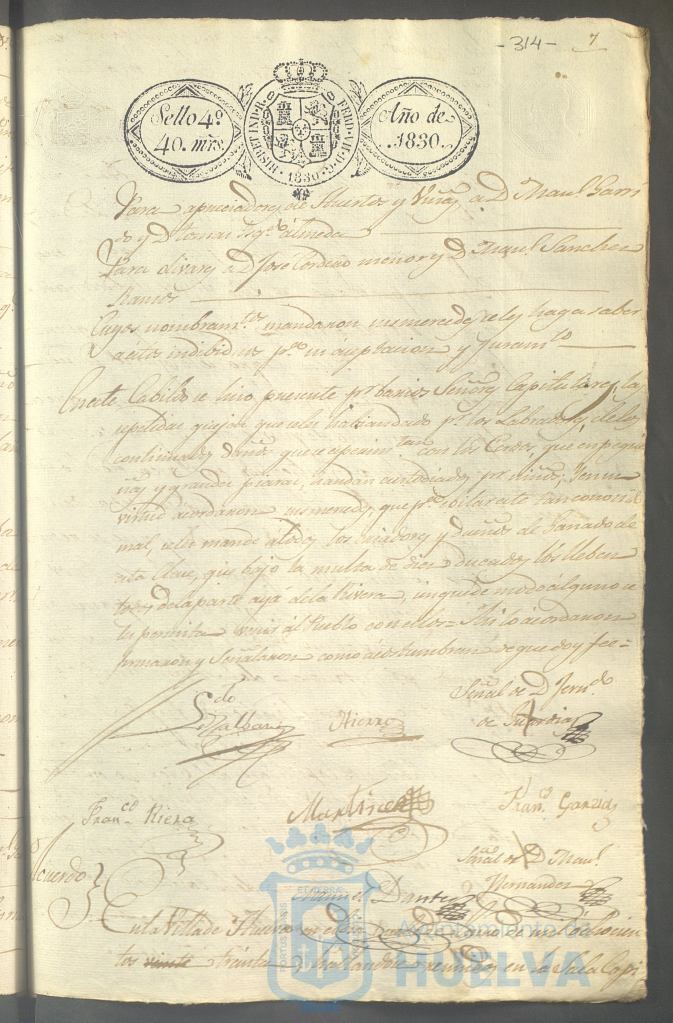 -314- 7
Sello 4º
40. mrs.
HISP. ET IND. R. FERD. VII. D. G. 1830.
Año de
.1830.
Para apreciadores de Huertas y Viñas a D. Manl. Garri
do y D.
Para olivares a D. Jose Cordero menor y D. Manl. Sanchez
Ramos
Cuyos nombramtos. mandaron sus mercedes se les haga saber
a estos individuos pa. su aceptacion y Juramto.
En este Cabildo se hizo presente pr. barios Señores Capitulares las
repetidas quejas que se les habian dado pr. los Labradores, de los
continuados daños que esperimtan. con los Cerdos, que en peque
ñas y grandes piaras, andan custodiados pr. niños; Y en su
virtud acordaron sus mercedes, que pa. evitar este tan conocido
mal, se les mande a todos los criadores y dueños de Ganado de
esta Clase, que bajo la multa de dies ducados los lleben
todos de la parte aya de la Rivera, sin que de modo alguno se
les permita venir al Pueblo con ellos = Asi lo acordaron
firmaron y Señalaron como acostumbran de que doy fee =
Señal de D. Ferndo.
de
Hierro
Franco. Riera
Martinez
Franco. Garzia
Señal de D. Manl.
Hernandez
Manuel Dante
Acuerdo
En la Villa de Huelva en
de mil ochocien
tos veinte treinta hallandose reunidos en la Sala Capi
Ayuntamiento de
HUELVA